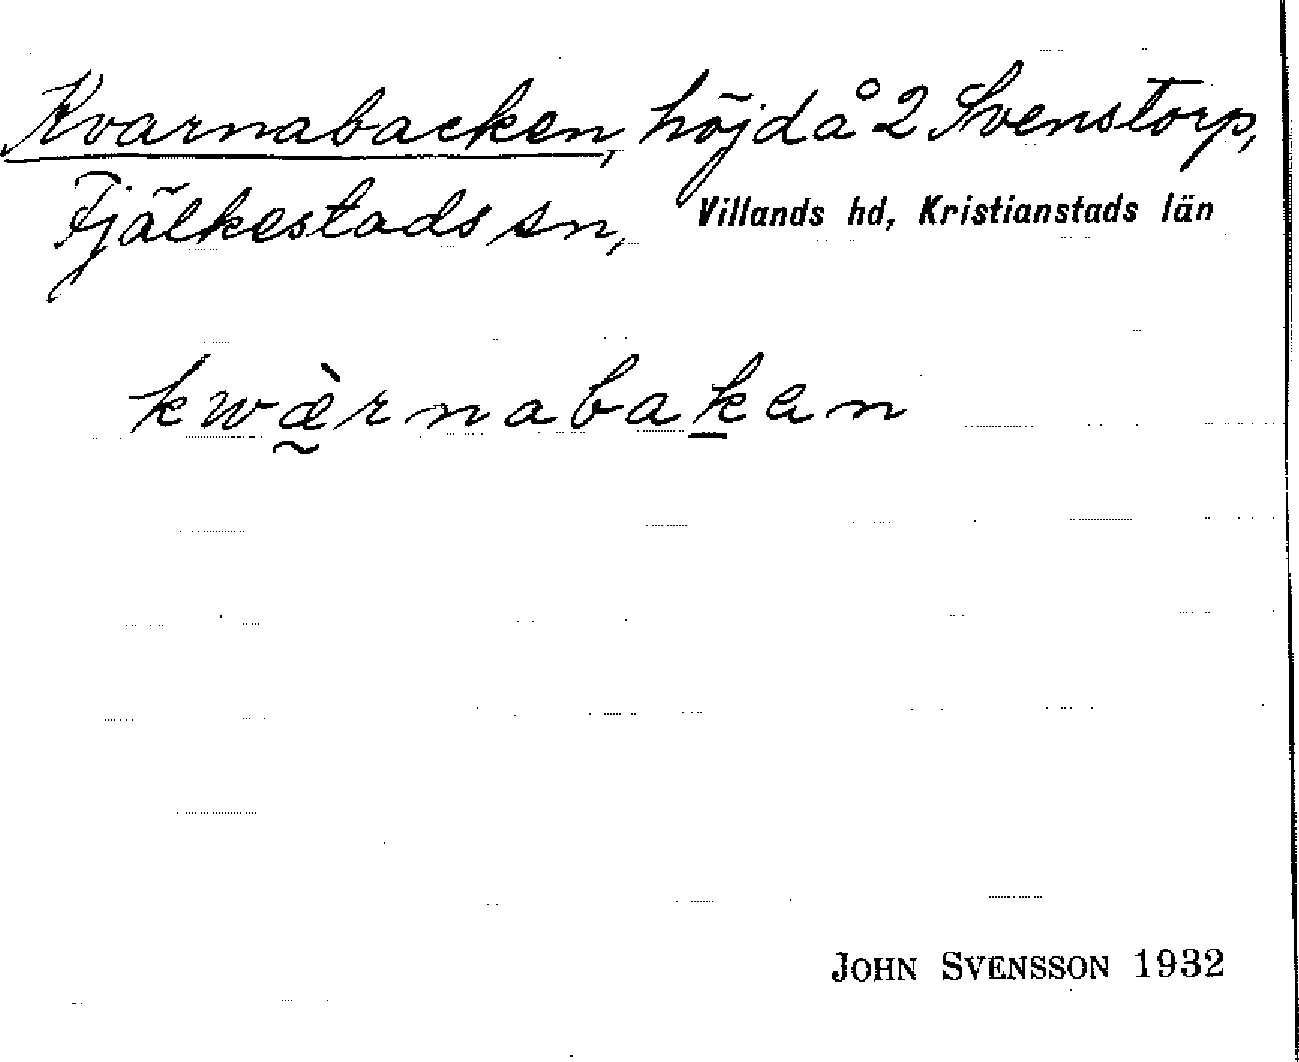 Kvarnabacken, höjd å 2 Svenstorp,
Fjälkestads sn, Villands hd, Kristianstads län
kwæ̰̀rnabaḵen
JOHN SVENSSON 1932